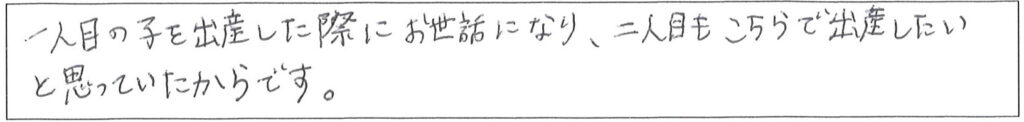 一人目の子を出産した際にお世話になり、二人目もこちらで出産したい
と思っていたからです。